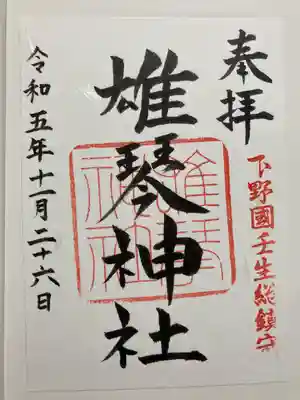 奉拝
下野國壬生総鎮守
雄琴神社
令和五年十一月二十六日